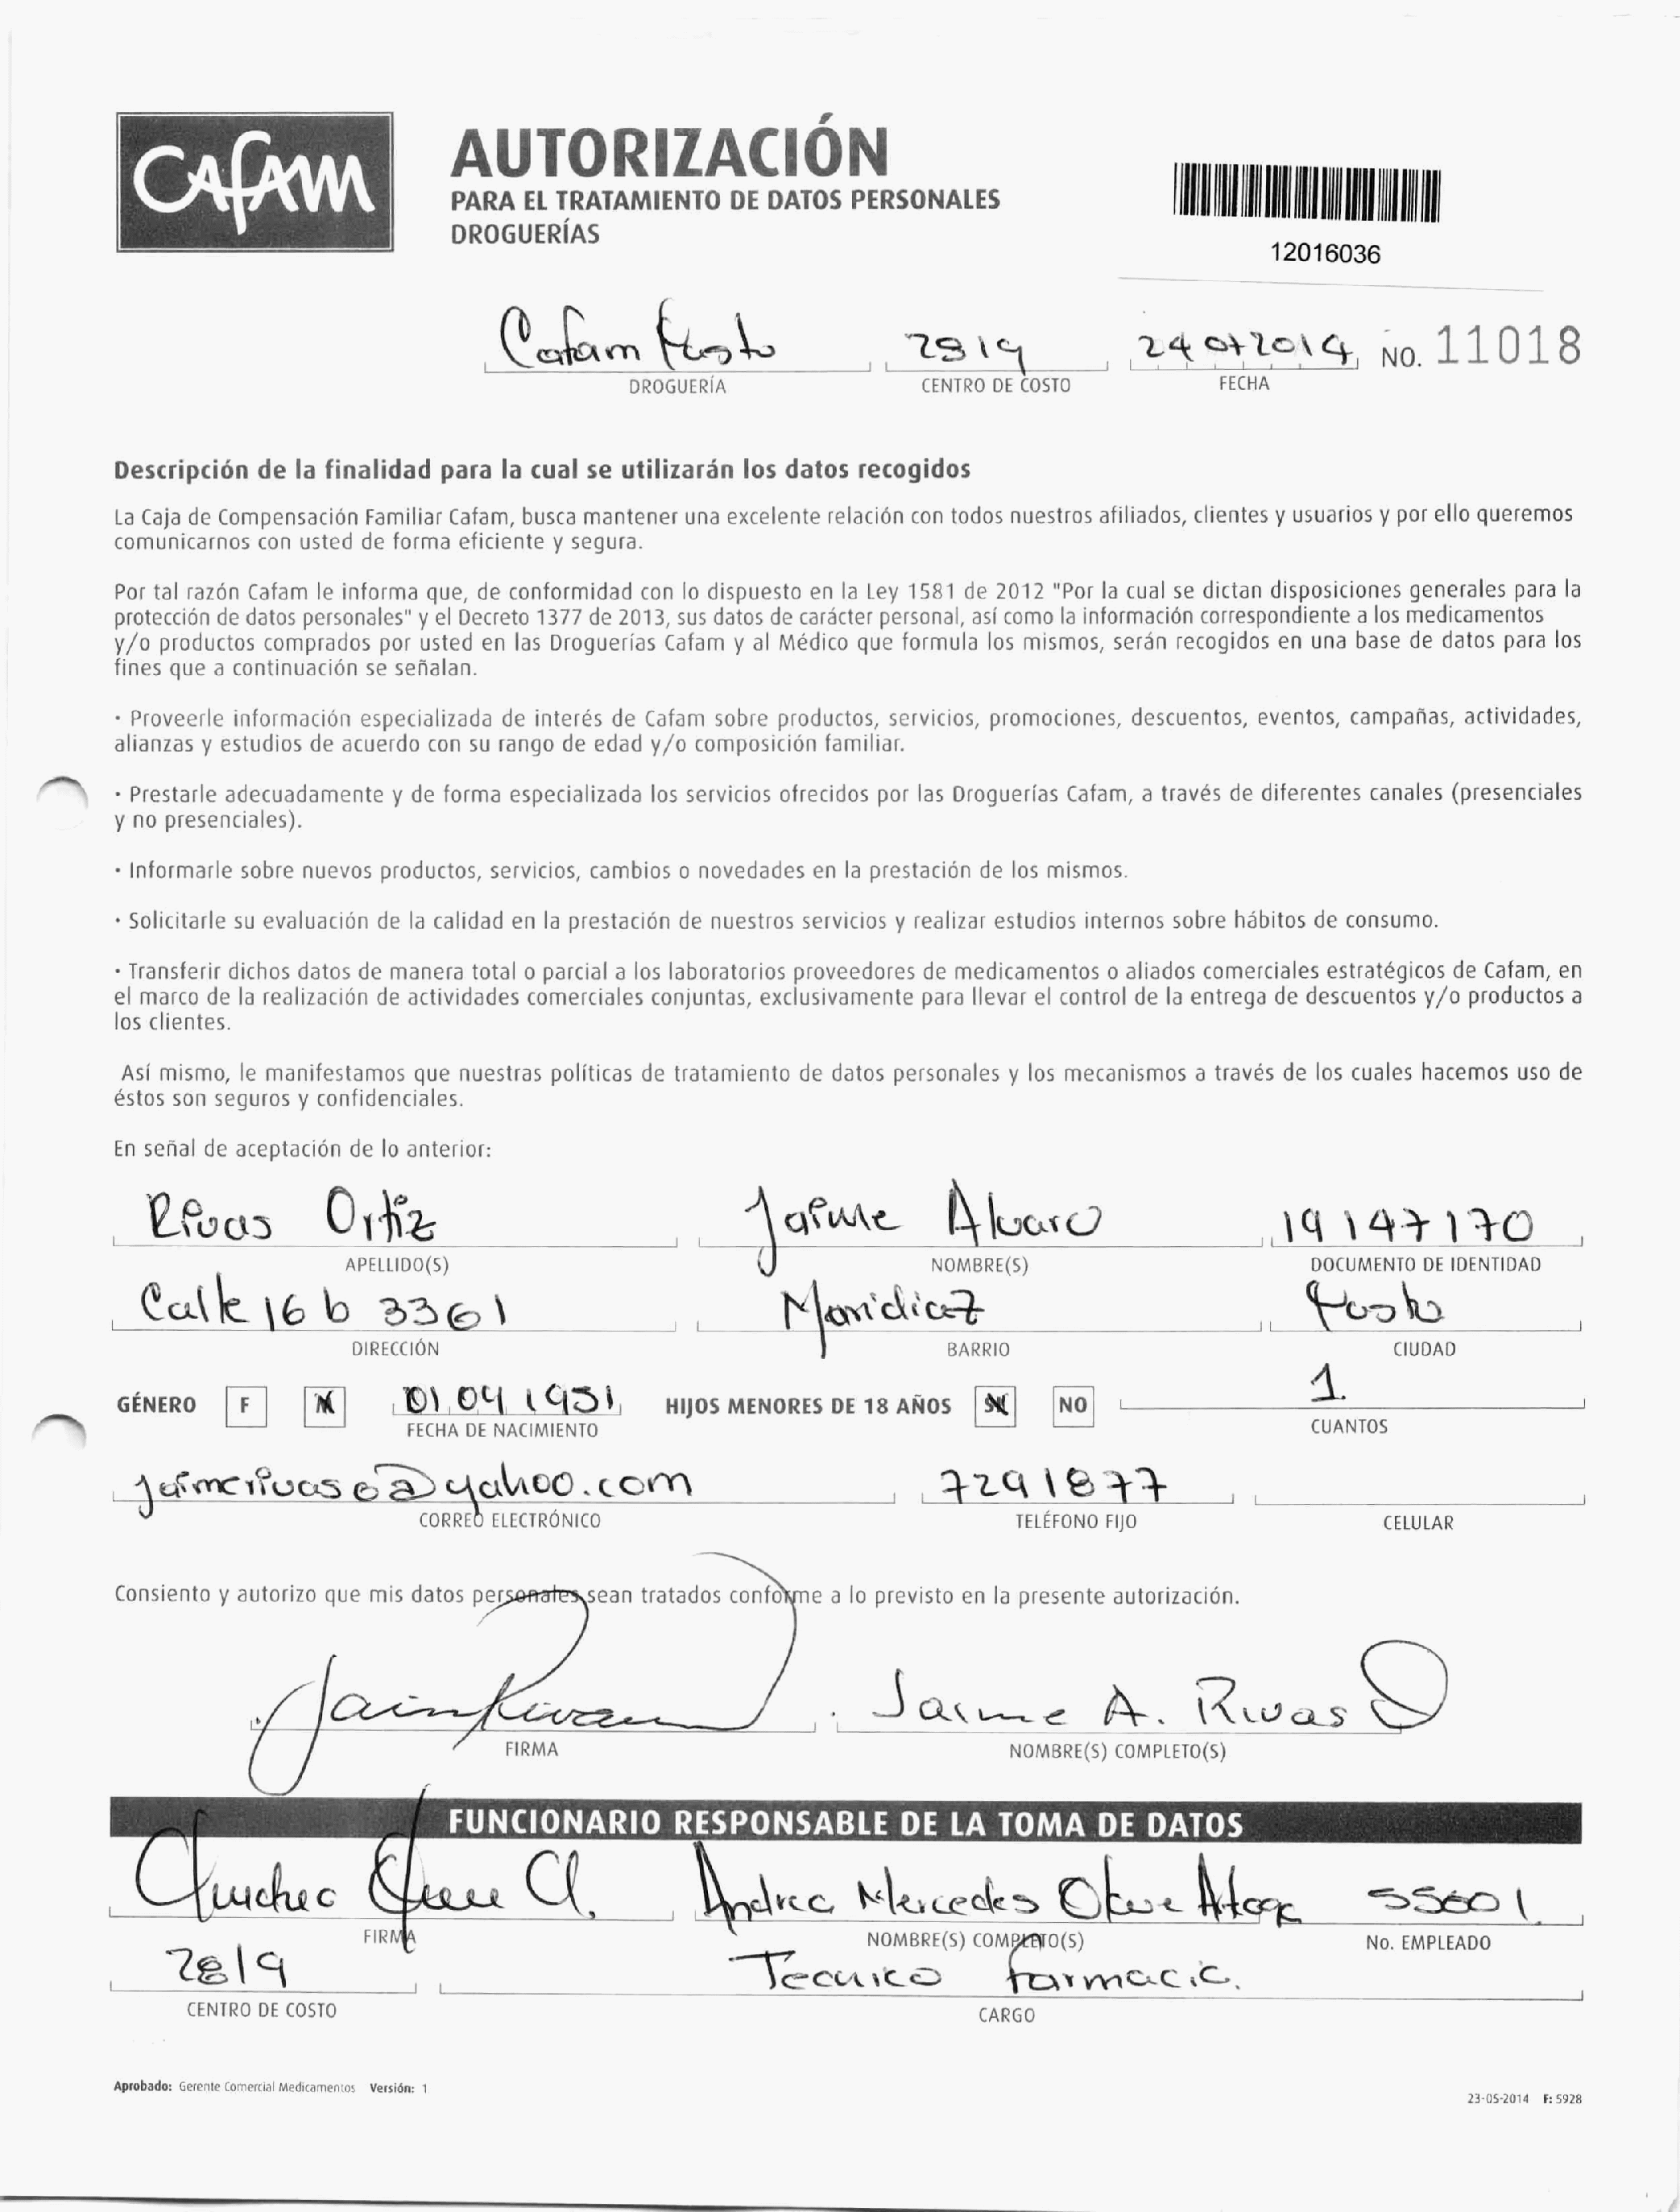 CAFAM
AUTORIZACIÓN
PARA EL TRATAMIENTO DE DATOS PERSONALES
DROGUERÍAS
12016036
Cafam Pasto 2819 24 07 2014 NO. 11018
DROGUERÍA CENTRO DE COSTO FECHA
Descripción de la finalidad para la cual se utilizarán los datos recogidos
La Caja de Compensación Familiar Cafam, busca mantener una excelente relación con todos nuestros afiliados, clientes y usuarios y por ello queremos
comunicarnos con usted de forma eficiente y segura.
Por tal razón Cafam le informa que, de conformidad con lo dispuesto en la Ley 1581 de 2012 "Por la cual se dictan disposiciones generales para la
protección de datos personales" y el Decreto 1377 de 2013, sus datos de carácter personal, así como la información correspondiente a los medicamentos
y/o productos comprados por usted en las Droguerías Cafam y al Médico que formula los mismos, serán recogidos en una base de datos para los
fines que a continuación se señalan.
· Proveerle información especializada de interés de Cafam sobre productos, servicios, promociones, descuentos, eventos, campañas, actividades,
alianzas y estudios de acuerdo con su rango de edad y/o composición familiar.
· Prestarle adecuadamente y de forma especializada los servicios ofrecidos por las Droguerías Cafam, a través de diferentes canales (presenciales
y no presenciales).
· Informarle sobre nuevos productos, servicios, cambios o novedades en la prestación de los mismos.
· Solicitarle su evaluación de la calidad en la prestación de nuestros servicios y realizar estudios internos sobre hábitos de consumo.
· Transferir dichos datos de manera total o parcial a los laboratorios proveedores de medicamentos o aliados comerciales estratégicos de Cafam, en
el marco de la realización de actividades comerciales conjuntas, exclusivamente para llevar el control de la entrega de descuentos y/o productos a
los clientes.
Así mismo, le manifestamos que nuestras políticas de tratamiento de datos personales y los mecanismos a través de los cuales hacemos uso de
éstos son seguros y confidenciales.
En señal de aceptación de lo anterior:
Rivas Ortiz Jaime Alvaro 19147170
APELLIDO(S) NOMBRE(S) DOCUMENTO DE IDENTIDAD
Calle 16 b 3361 Maridiaz Pasto
DIRECCIÓN BARRIO CIUDAD
GÉNERO F M 01 04 1951 HIJOS MENORES DE 18 AÑOS SI NO 1
FECHA DE NACIMIENTO CUANTOS
jaimerivaso@yahoo.com 7291877
CORREO ELECTRÓNICO TELÉFONO FIJO CELULAR
Consiento y autorizo que mis datos personales sean tratados conforme a lo previsto en la presente autorización.
Jaime A. Rivas O
FIRMA NOMBRE(S) COMPLETO(S)
FUNCIONARIO RESPONSABLE DE LA TOMA DE DATOS
Andrea Mercedes 55601
FIRMA NOMBRE(S) COMPLETO(S) No. EMPLEADO
2819 Tecnico farmacia.
CENTRO DE COSTO CARGO
Aprobado: Gerente Comercial Medicamentos Versión: 1
23-05-2014 F: 5928